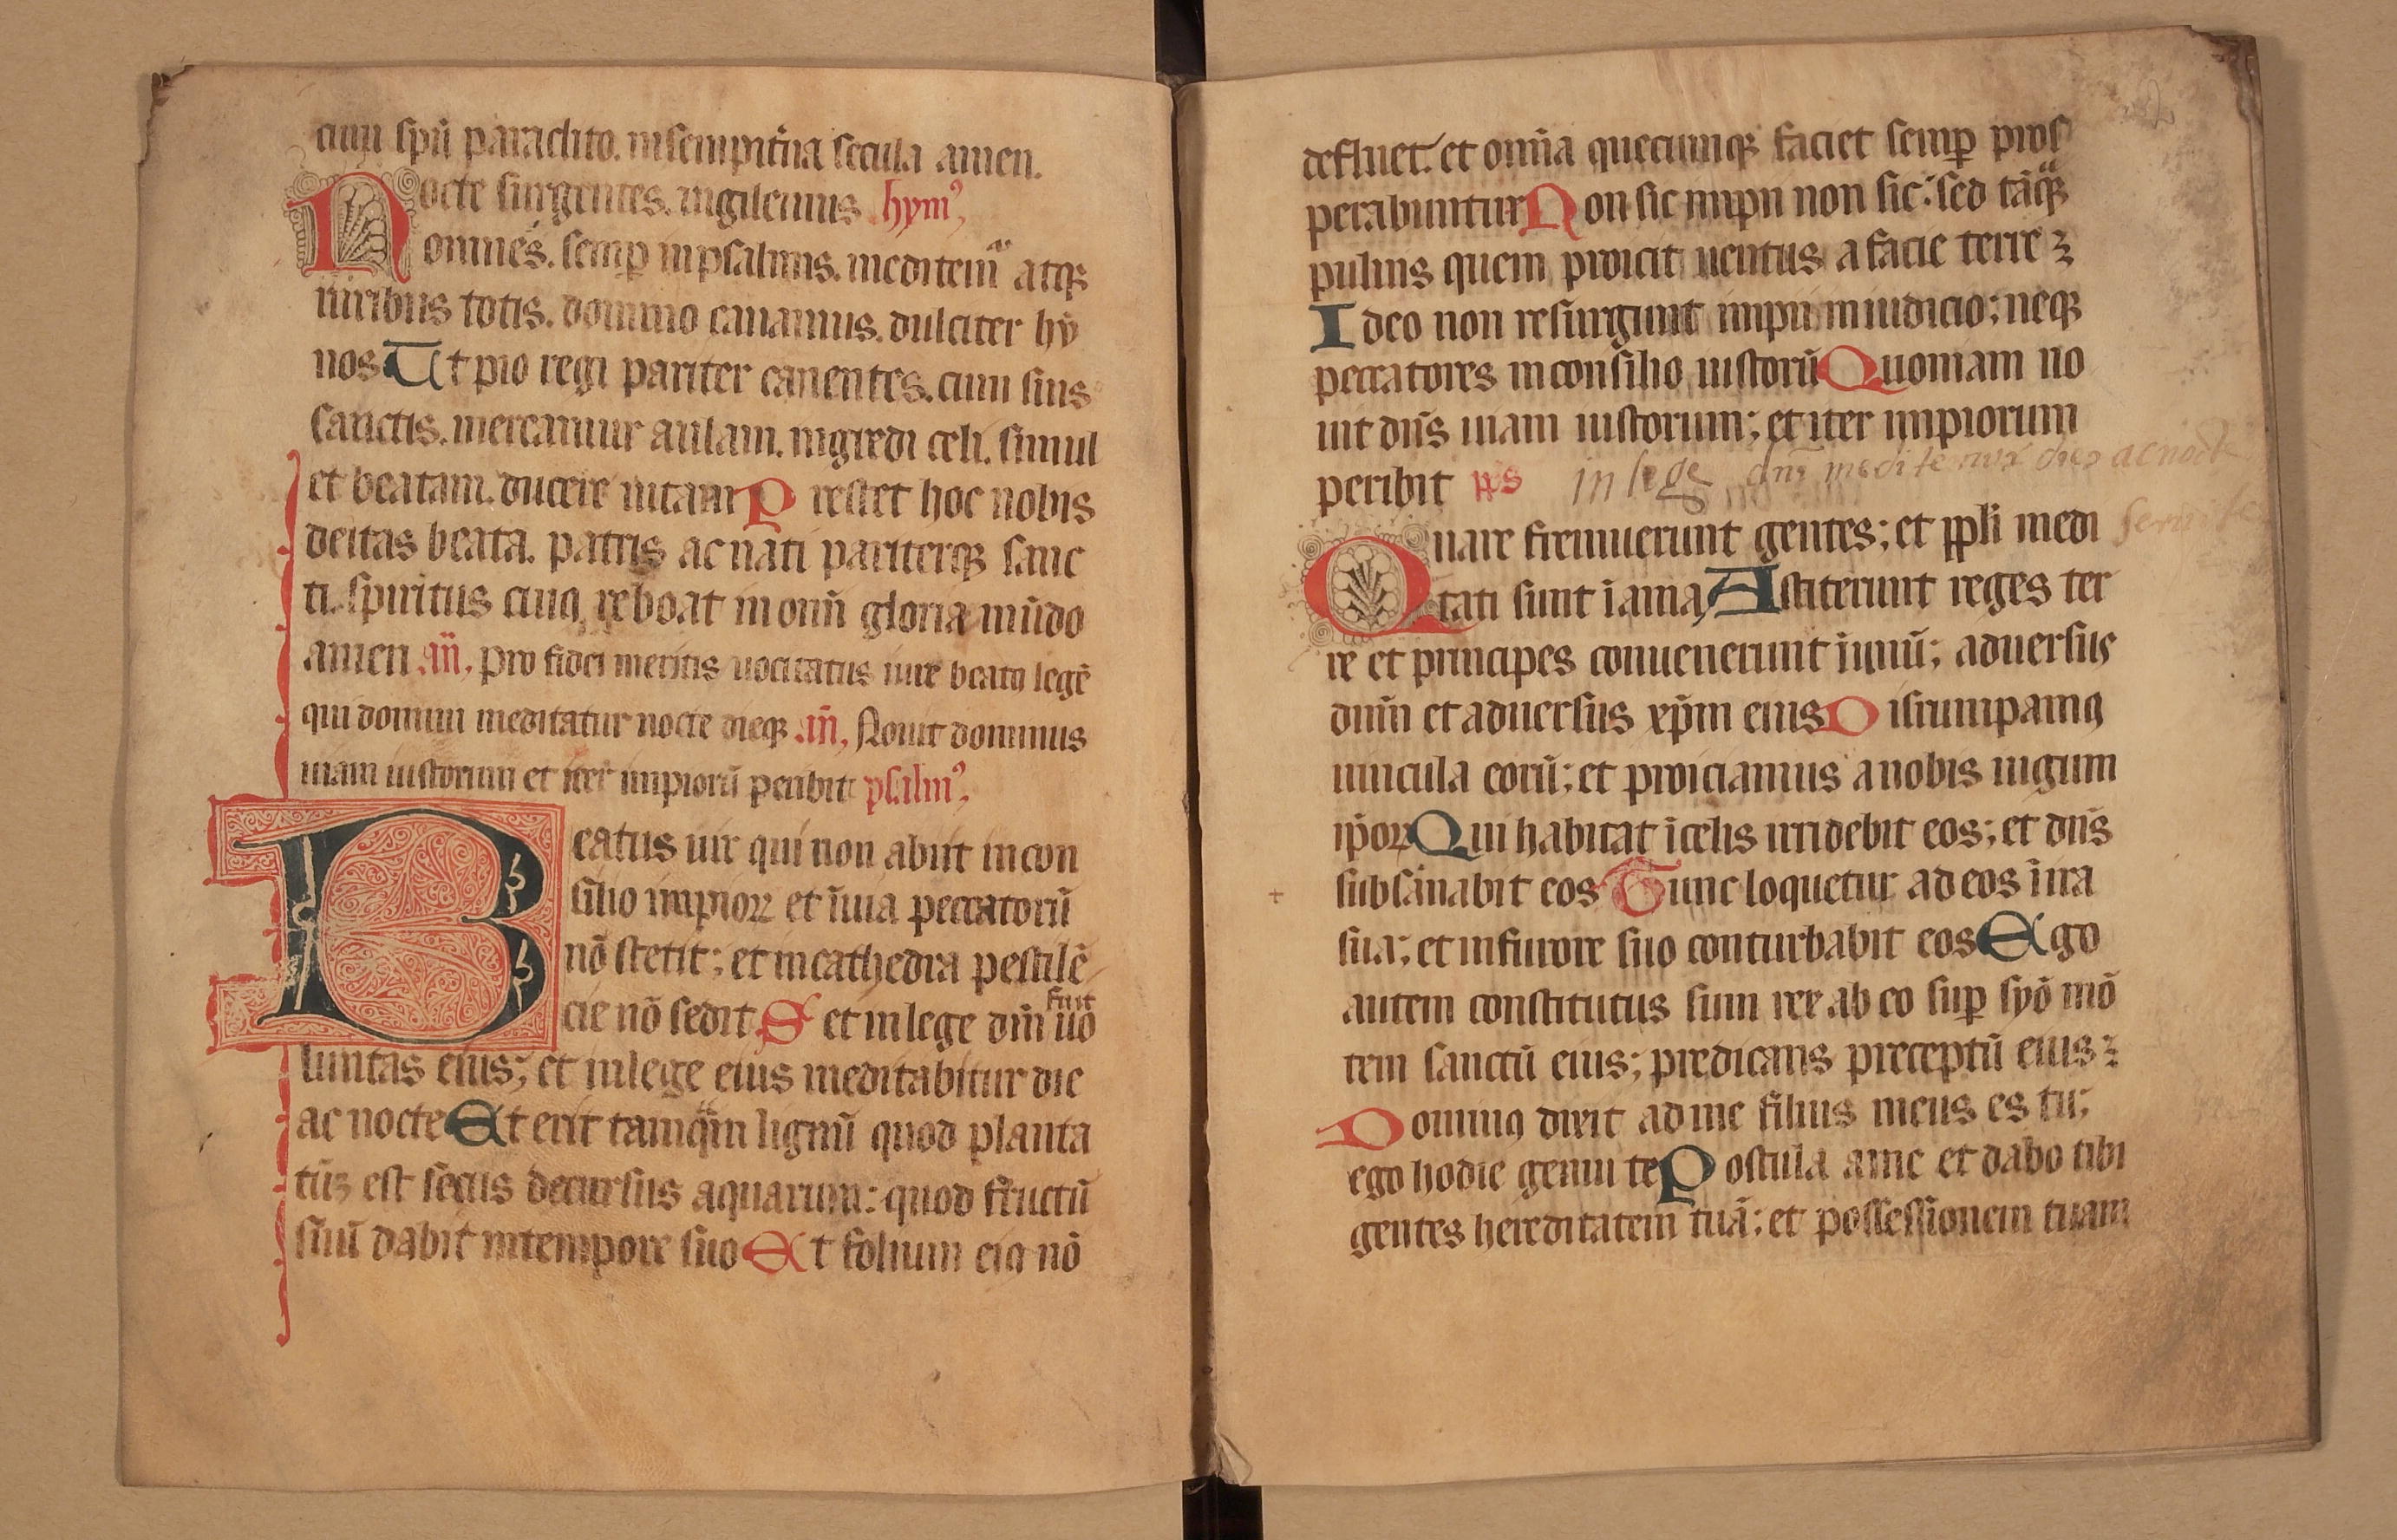 cum spū paraclito. in sempiťna secula amen.
Nocte surgentes. uigilemus hymꝰ,
omnes. semꝑ in psalmis. meditemᷓ atqꝫ
uiribus totis. domino canamus. dulciter hȳ
nos Ut pio regi pariter canentes. cum suis
sanctis. mereamur aulam. ingredi celi. simul
et beatam. ducere uitam Prestet hoc nobis
deitas beata. patris ac nati pariterqꝫ sanc
ti. spiritus cuiꝰ reboat in om̄i gloria mūdo
amen an̄. Pro fidei meritis uocitatus iure beatꝰ legē
qui domini meditatur nocte dieqꝫ an̄. Nouit dominus
uiam iustorum et iter impiorū peribit psalmꝰ,
Beatus uir qui non abiit in con
silio impioꝝ et ī uia peccatorū
nō stetit; et in cathedra pestilē
cie nō sedit Set in lege dn̄i fuit uo
luntas eius; et in lege eius meditabitur die
ac nocte Et erit tamqᷓm lignū quod planta
tū est secus decursus aquarum: quod fructū
suū dabit in tempore suo Et folium eiꝰ nō
defluet. et omīa quecumqꝫ faciet semꝑ pros
perabuntur Non sic impii non sic: sed tāqᷓꝫ
puluis quem proicit uentus a facie terre
Ideo non resurgunt impii in iudicio; neqꝫ
peccatores in consilio iustorū Quoniam no
uit dn̄s uiam iustorum; et iter impiorum
peribit p̄s in lege dn̄i meditemur dies ac nocte
Quare fremuerunt gentes; et ppli medi seruite
tati sunt ī aniā Astiterunt reges ter
re et principes conuenerunt ī unū; aduersus
dnm̄ et aduersus xp̄m eius Disrumpamꝰ
uincula eorū; et proiciamus a nobis iugum
ip̄oꝝ Qui habitat ī celis irridebit eos; et dn̄s
subsānabit eos Tunc loquetur ad eos ī ira
sua; et in furore suo conturbabit eos Ego
autem constitutus sum rex ab eo suꝑ syō mō
tem sanctū eius; predicans preceptū eius
Dominꝰ dixit ad me filius meus es tu;
ego hodie genui te Postula a me et dabo tibi
gentes hereditatem tuā; et possessionem tuam